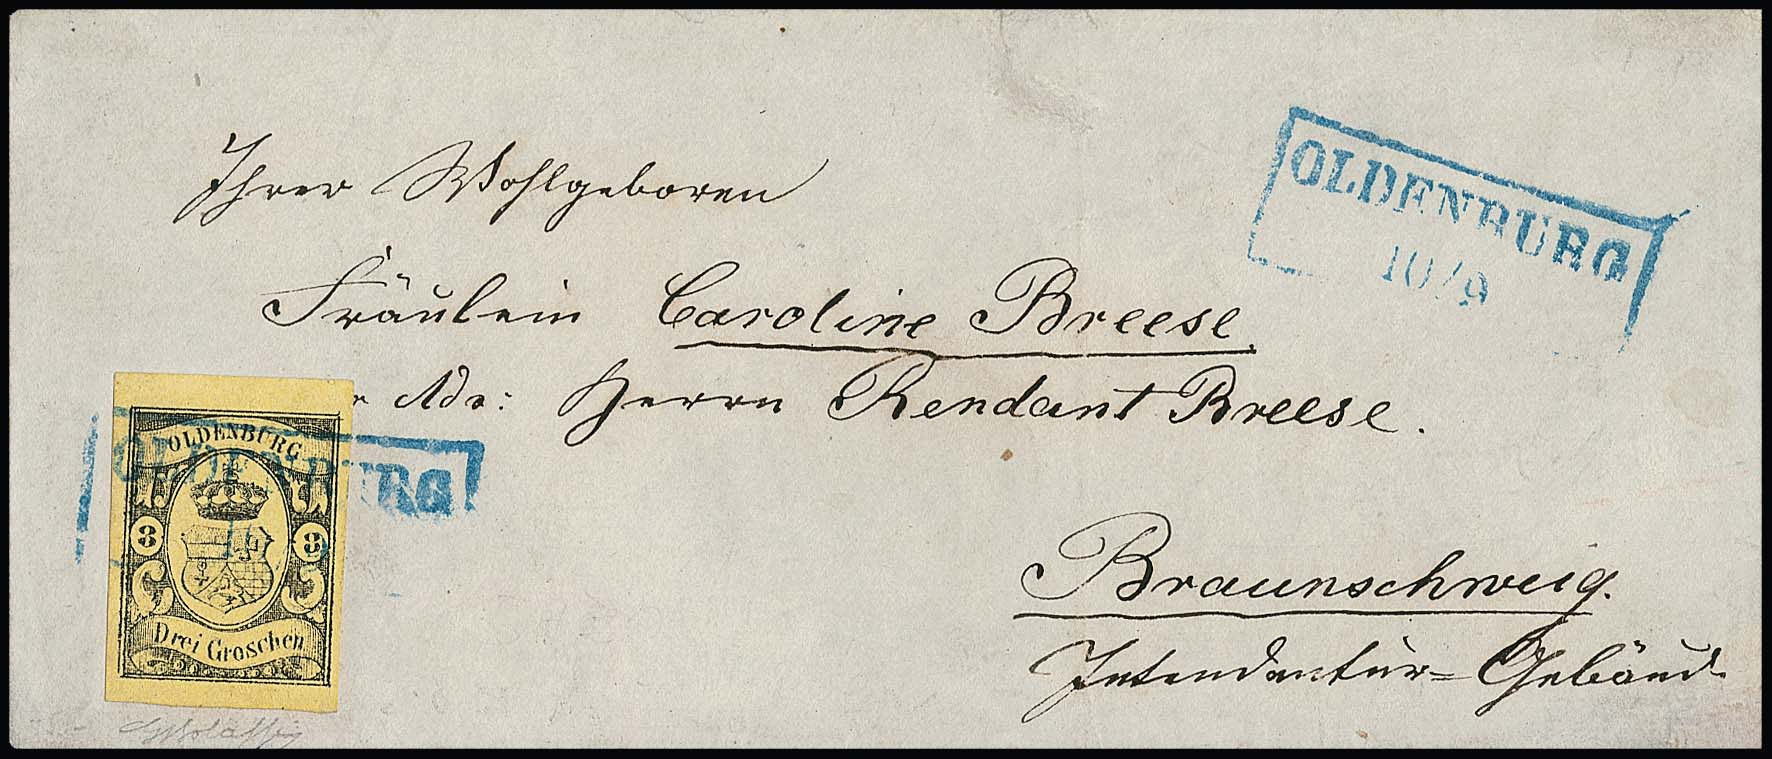 OLDENBURG
10/9
Ihrer Wohlgeboren
Fräulein Caroline Breese.
r Adr: Herrn Rendant Breese.
OLDENBURG
OLDENBURG
3 3
Drei Groschen
Braunschweig.
Intendantur=Gebäud.